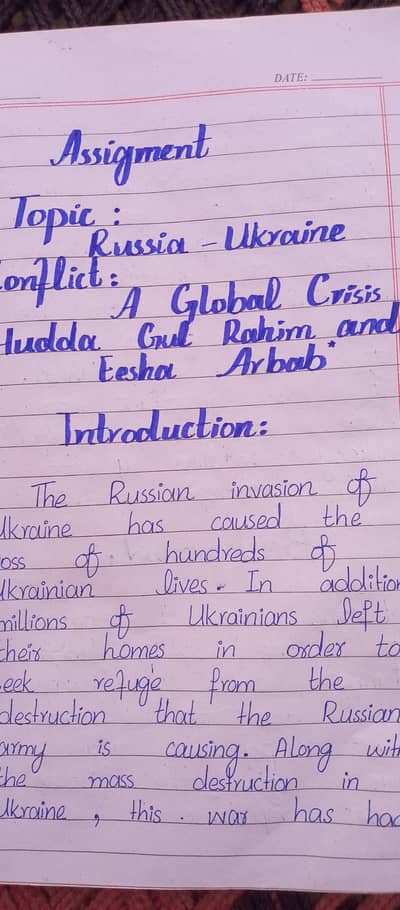 DATE:
Assigment
Topic :
Russia - Ukraine
onflict :
A Global Crisis
Hudda Gul Rahim and
Eesha Arbab
Introduction:
The Russian invasion of
Ukraine has caused the
oss of hundreds of
Ukrainian lives. In addition
millions of Ukrainians left
their homes in order to
eek refuge from the
destruction that the Russian
army is causing. Along with
the mass destruction in
Ukraine, this war has had